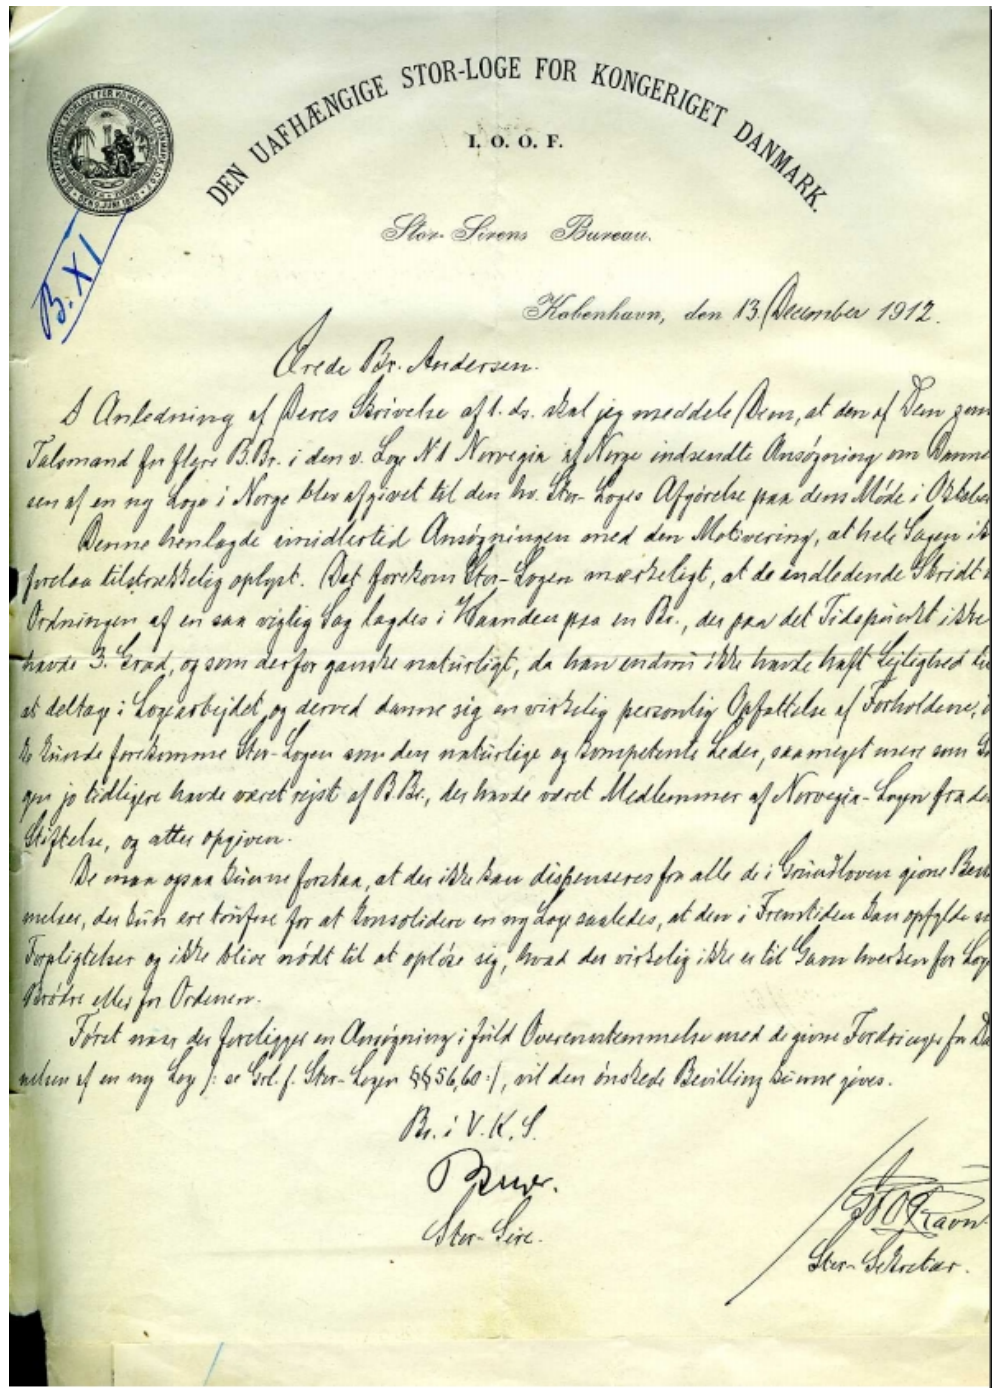 DEN UAFHÆNGIGE STOR-LOGE FOR KONGERIGET DANMARK.
I. O. O. F.
Stor-Sirens Bureau.
B. XI
København, den 13. December 1912.
Ærede Br. Andersen.
I Anledning af Deres Skrivelse af 1. ds. skal jeg meddele Dem, at den af Dem som
Talsmand for flere B.Br. i den v. Loge N 1 Norvegia af Norge indsendte Ansøgning om Danne
sen af en ny Loge i Norge blev afgivet til den hv. Stor-Loges Afgørelse paa dens Møde i Oktober
Denne henlagde imidlertid Ansøgningen med den Motivering, at hele Sagen ik
forelaa tilstrækkelig oplyst. Det forekom Stor-Logen mærkeligt, at de indledende Skridt
Ordningen af en saa vigtig Sag lagdes i Haanden paa en Br., der paa det Tidspunkt ikke
havde 3. Grad, og som derfor ganske naturligt, da han endnu ikke havde haft Lejlighed til
at deltage i Logearbejdet og derved danne sig en virkelig personlig Opfattelse af Forholdene, i
ke kunde forekomme Stor-Logen som den naturlige og kompetente Leder, saa meget mere som Sa
gen jo tidligere havde været rejst af B.Br., der havde været Medlemmer af Norvegia-Logen fra de
Stiftelse, og atter opgiven.
De maa ogsaa kunne forstaa, at der ikke kan dispenseres fra alle de i Grundloven givne Bem
melser, der kun ere trufne for at konsolidere en ny Loge saaledes, at den i Fremtiden kan opfylde si
Forpligtelser og ikke blive nødt til at opløse sig, hvad der virkelig ikke er til Gavn hverken for Log
Brødre eller for Ordenen.
Først naar der foreligger en Ansøgning i fuld Overensstemmelse med de givne Fordringer for Da
nelsen af en ny Loge /: se Grl. f. Stor-Logen §§ 56,60 :/, vil den ønskede Bevilling kunne gives.
Br. i V. K. S.
Stor-Sire.
Ravn
Stor-Sekretær.